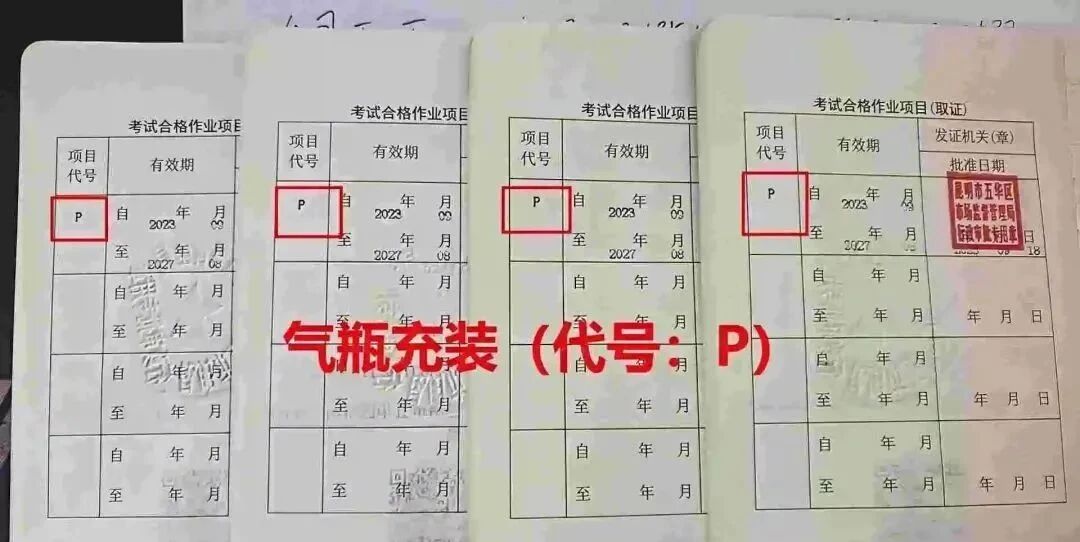 考试合格作业项目
项目代号
有效期
P
自 年 月
2023 09
至 年 月
2027 08
自 年 月
至 年 月
自 年 月
至 年 月
自 年 月
至 年 月
考试合格作业项目
项目代号
有效期
P
自 年 月
2023 09
至 年 月
2027 08
自 年 月
至 年 月
自 年 月
至 年 月
自 年 月
至 年 月
考试合格作业项目
项目代号
有效期
P
自 年 月
2023 09
至 年 月
2027 08
自 年 月
至 年 月
自 年 月
至 年 月
自 年 月
至 年 月
考试合格作业项目(取证)
项目代号
有效期
发证机关(章)
批准日期
P
自 年 月
2023 09
至 年 月
2027 08
昆明市五华区
市场监督管理局
行政审批专用章
日
09 18
自 年 月
至 年 月
年 月 日
自 年 月
至 年 月
年 月 日
自 年 月
至 年 月
年 月 日
气瓶充装（代号：P）